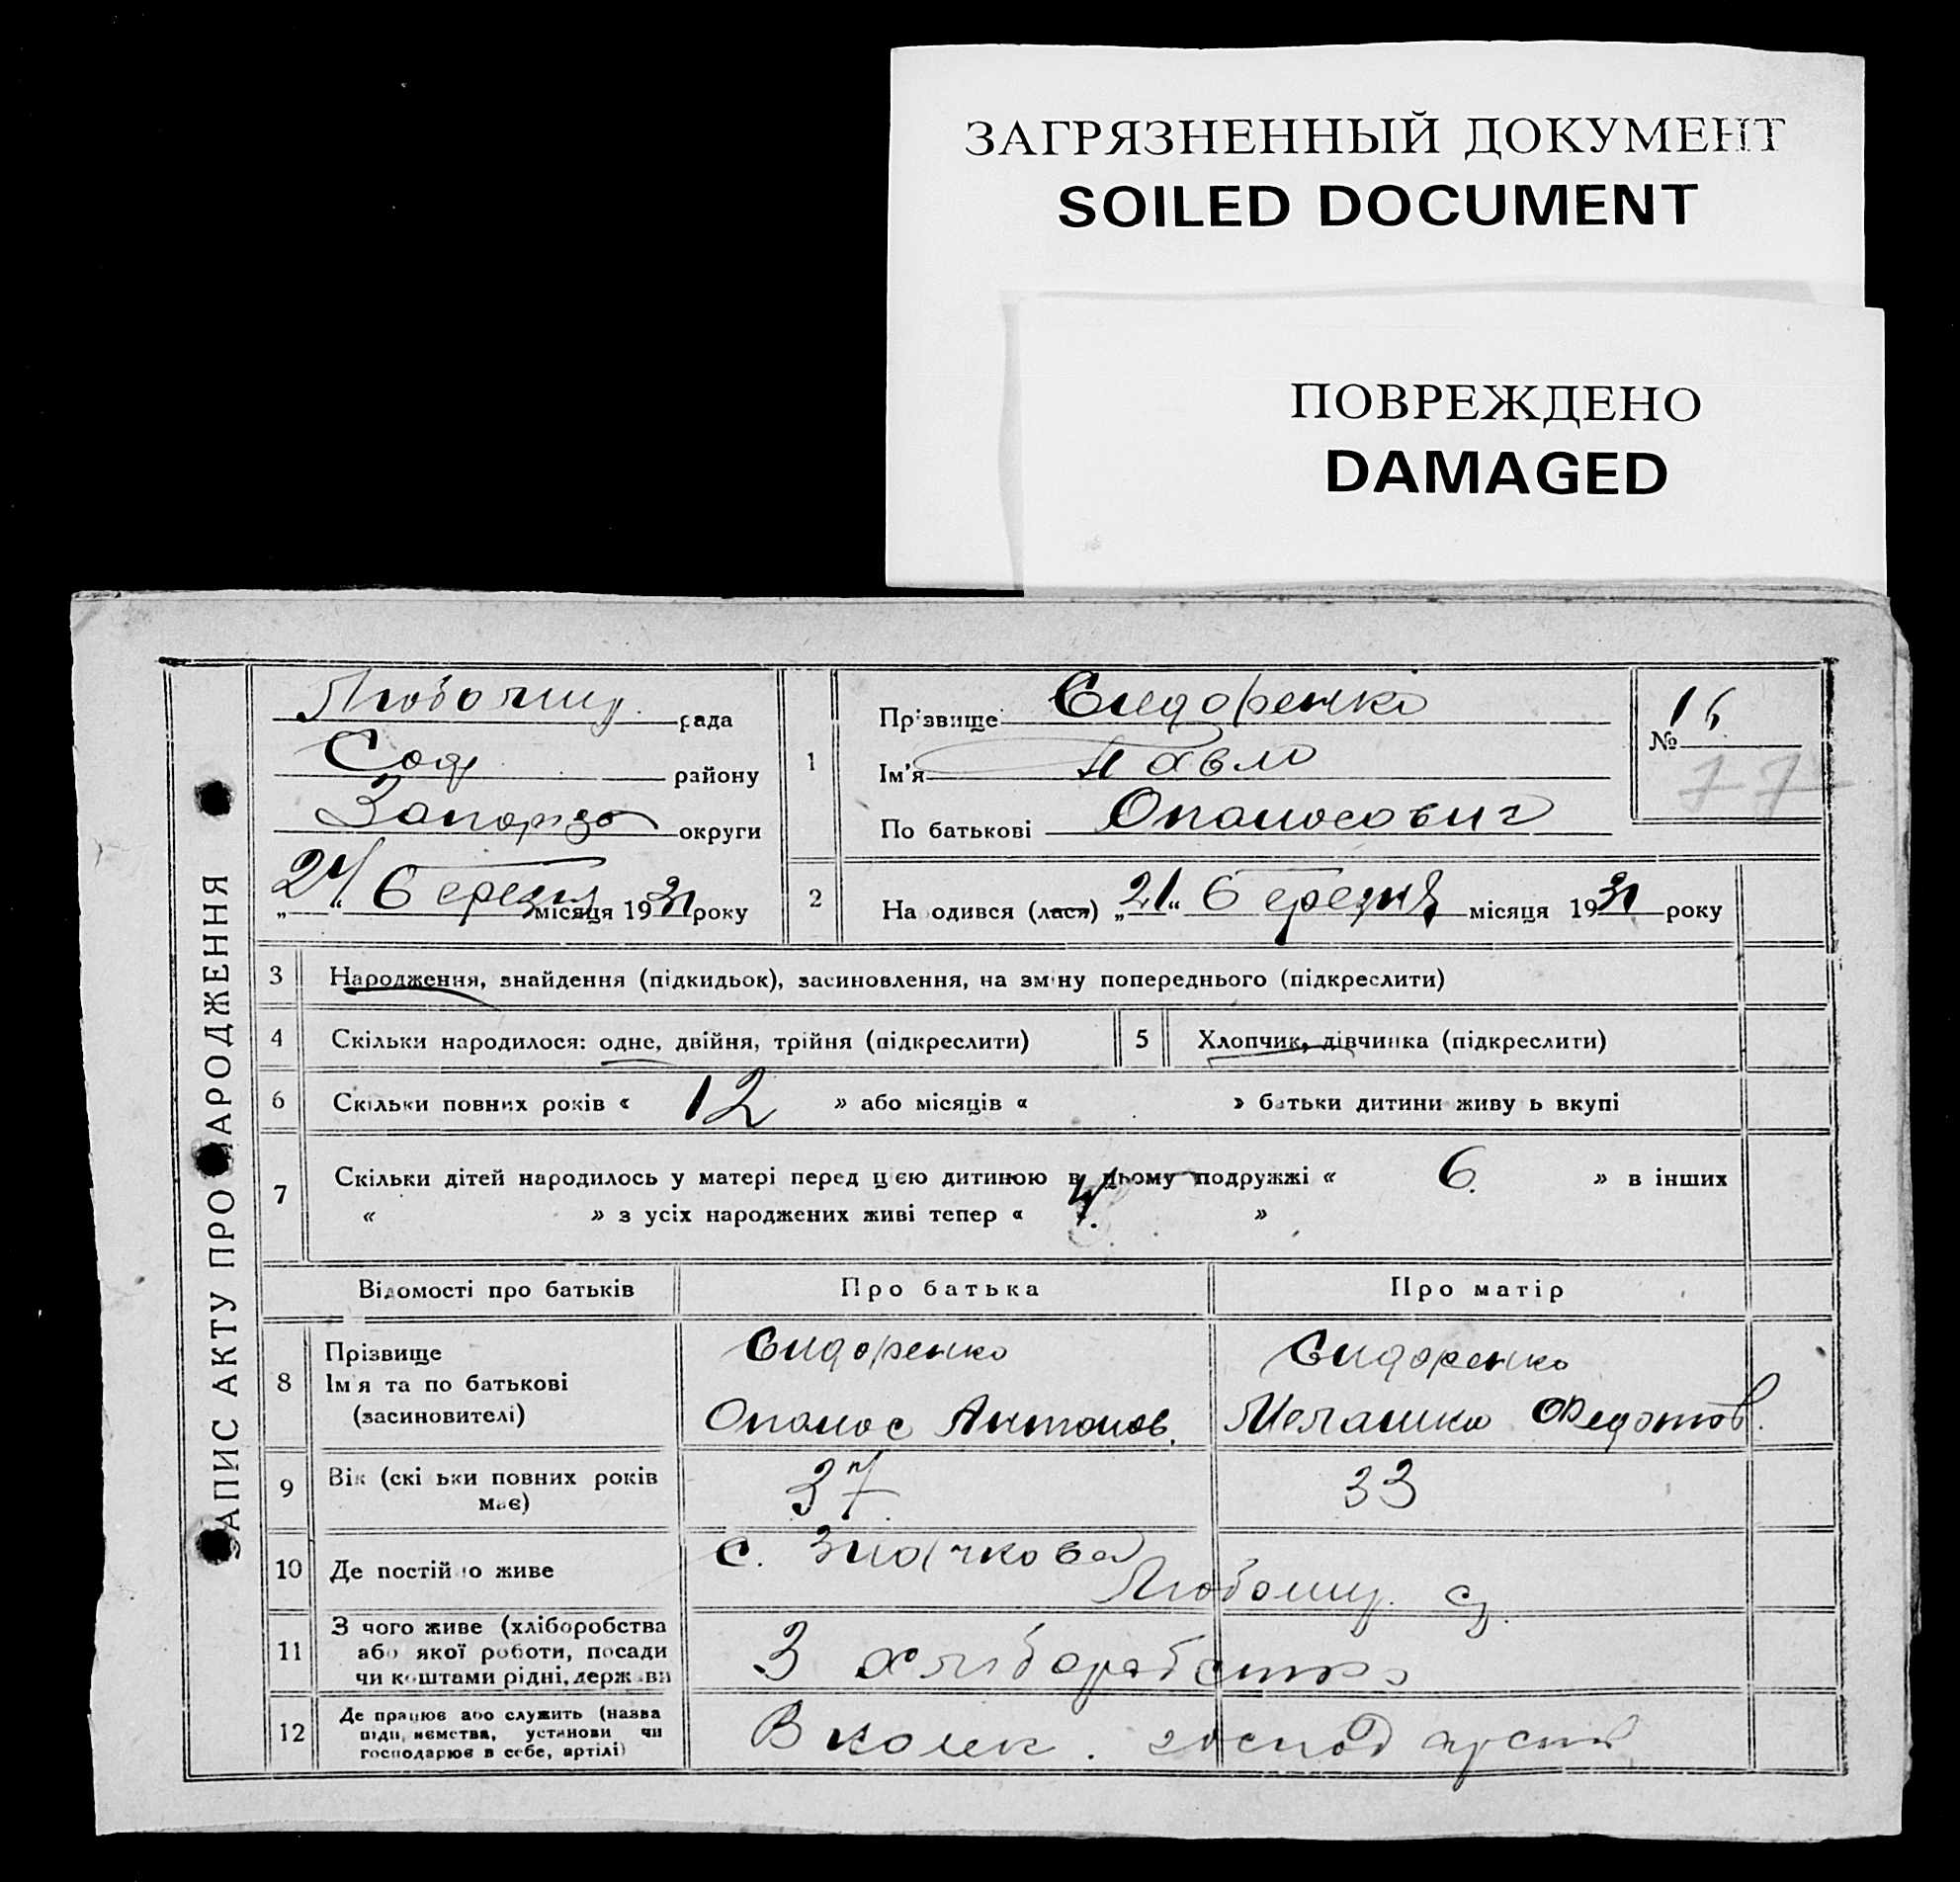 ЗАГРЯЗНЕННЫЙ ДОКУМЕНТ
SOILED DOCUMENT
ПОВРЕЖДЕНО
DAMAGED
ЗАПИС АКТУ ПРО НАРОДЖЕННЯ
рада
району
округи
24 березня місяця 1931 року
1
Прізвище Сидоренко
Ім'я Павло
По батькові Опанасович
№ 16
77
2
Народився (лася) „21“ березня місяця 1931 року
3 Народження, знайдення (підкидьок), засиновлення, на зміну попереднього (підкреслити)
4 Скільки народилося: одне, двійня, трійня (підкреслити)
5 Хлопчик, дівчинка (підкреслити)
6 Скільки повних років « 12 » або місяців « » батьки дитини живуть вкупі
7 Скільки дітей народилось у матері перед цією дитиною в цьому подружжі « 6. » в інших
« » з усіх народжених живі тепер « 4. »
Відомості про батьків Про батька Про матір
8 Прізвище
Ім'я та по батькові
(засиновителі)
Сидоренко
Опанас Антонов.
Сидоренко
Мелашка Федотов.
9 Вік (скільки повних років
має)
37
33
10 Де постійно живе
с. Значкова
Любом
11 З чого живе (хліборобства
або якої роботи, посади
чи коштами рідні, держави
З хліборобства
12 Де працює або служить (назва
підприємства, установи чи
господарює в себе, артілі)
В колек. господарстві